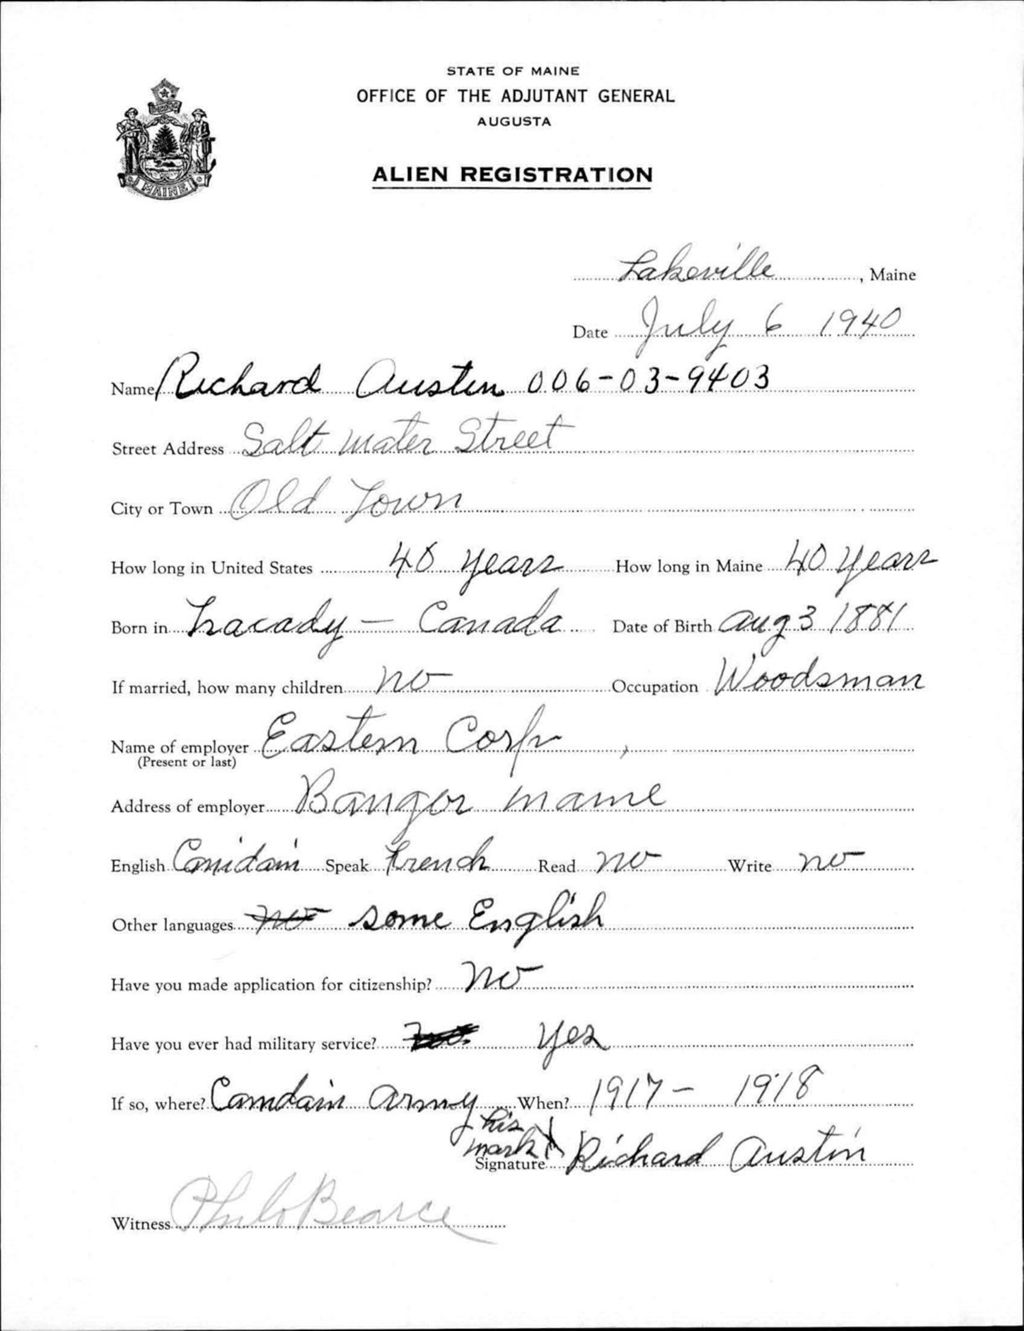 STATE OF MAINE
OFFICE OF THE ADJUTANT GENERAL
AUGUSTA
ALIEN REGISTRATION
MAINE
Lakeville, Maine
Date July 6 1940
Name Richard Austin 006-03-9403
Street Address Salt water Street
City or Town Old Town
How long in United States 40 years How long in Maine 40 years
Born in Tracady - Canada Date of Birth Aug 3 1881
If married, how many children no Occupation Woodsman
Name of employer Eastern Corp
(Present or last)
Address of employer Bangor Maine
English Canidain Speak French Read no Write no
Other languages no some English
Have you made application for citizenship? No
Have you ever had military service? no. yes
If so, where? Camdain Army When? 1917 - 1918
his
mark X
Signature Richard Austin
Witness Philo Bearce